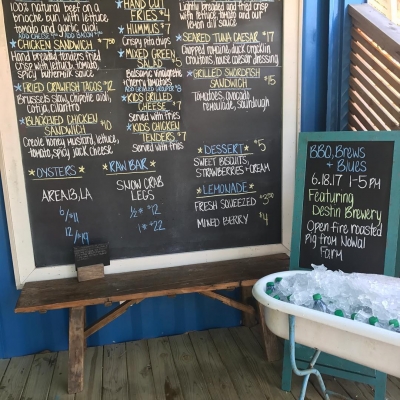 100% natural beef on a
brioche bun with lettuce
tomato and garlic aioli
ADD CHEESE $1 ADD BACON
CHICKEN SANDWICH
Hand breaded tenders fried
crisp with lettuce, tomato,
spicy buttermilk sauce
FRIED CRAWFISH TACOS $12
Brussels slaw, chipotle aioli,
Cotija, Cilantro
BLACKENED CHICKEN
SANDWICH $10
Creole honey mustard, lettuce,
tomato, spicy jack cheese
OYSTERS
AREA 13, LA
6/$11
12/$19
HAND CUT
FRIES $4
HUMMUS $7
Crispy pita chips
MIXED GREEN
SALAD
Balsamic vinaigrette
cherry tomatoes
ADD GRILLED GROUPER $8
KIDS GRILLED
CHEESE $7
Served with fries
KIDS CHICKEN
TENDERS $7
Served with fries
RAW BAR
SNOW CRAB
LEGS
1/2# $12
1# $22
Lightly breaded and fried crisp
with lettuce, tomato and our
aioli sauce
SEARED TUNA CAESAR $17
Chopped romaine, duck cracklin
croutons, house caesar dressing
GRILLED SWORDFISH
SANDWICH $15
Tomatoes, avocado
remoulade, sourdough
DESSERT $5
SWEET BISCUITS,
STRAWBERRIES + CREAM
LEMONADE
FRESH SQUEEZED $3.50
MIXED BERRY $4
BBQ, Brews
& Blues
6.18.17 1-5 PM
Featuring
Destin Brewery
Open fire roasted
Pig from NoWal
Farm